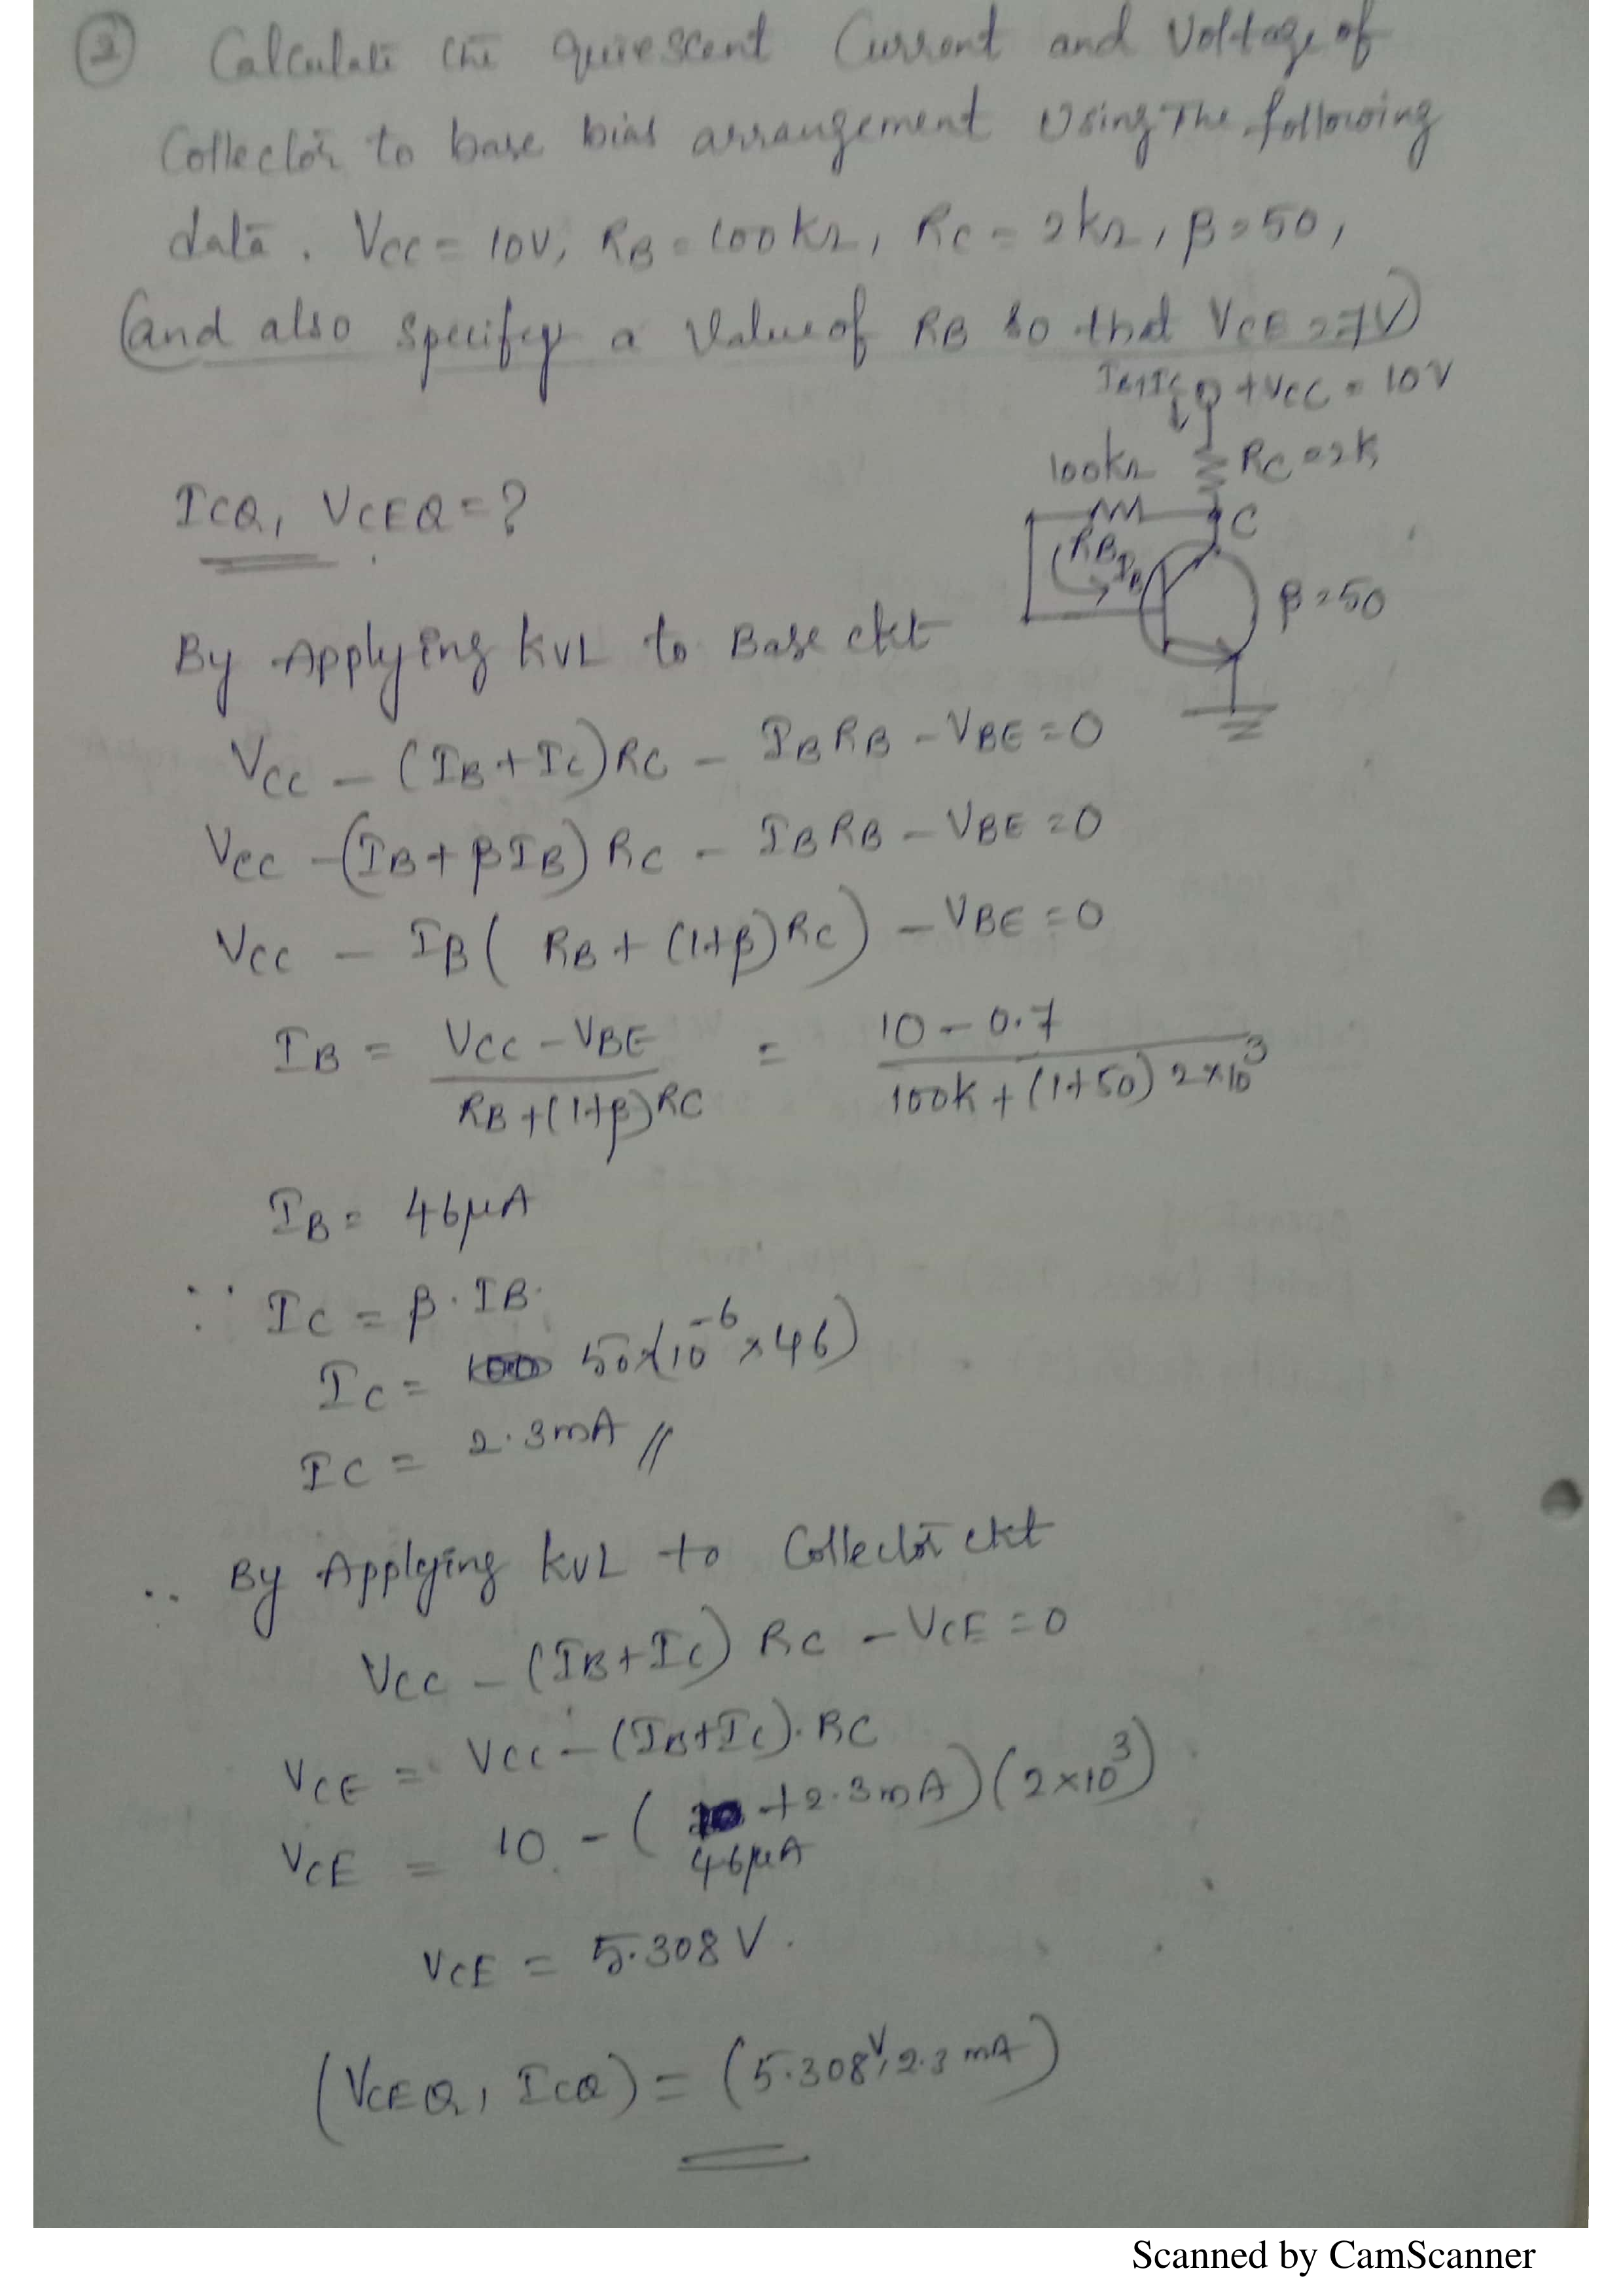 ② Calculate the quiescent Current and Voltage of
Collector to base bias arrangement Using The following
data. VCC = 10V, RB = 100kΩ, RC = 2kΩ, β = 50,
(and also specify a Value of RB so that VCE = 7V)
IB+IC +VCC = 10V
100kΩ RC = 2K
C
RB IB
β = 50
ICQ, VCEQ = ?
By Applying KVL to Base ckt
VCC - (IB + IC)RC - IBRB - VBE = 0
VCC - (IB + βIB) RC - IBRB - VBE = 0
VCC - IB( RB + (1+β)RC) - VBE = 0
IB = VCC - VBE / RB + (1+β)RC = 10 - 0.7 / 100K + (1+50) 2×10³
IB = 46μA
∵ IC = β · IB.
IC = 50×(10⁻⁶ × 46)
IC = 2.3mA //
∴ By Applying KVL to Collector ckt
VCC - (IB + IC) RC - VCE = 0
VCE = VCC - (IB+IC). RC
VCE = 10 - (46μA + 2.3mA)(2×10³)
VCE = 5.308 V.
(VCEQ, ICQ) = (5.308V, 2.3 mA)
Scanned by CamScanner